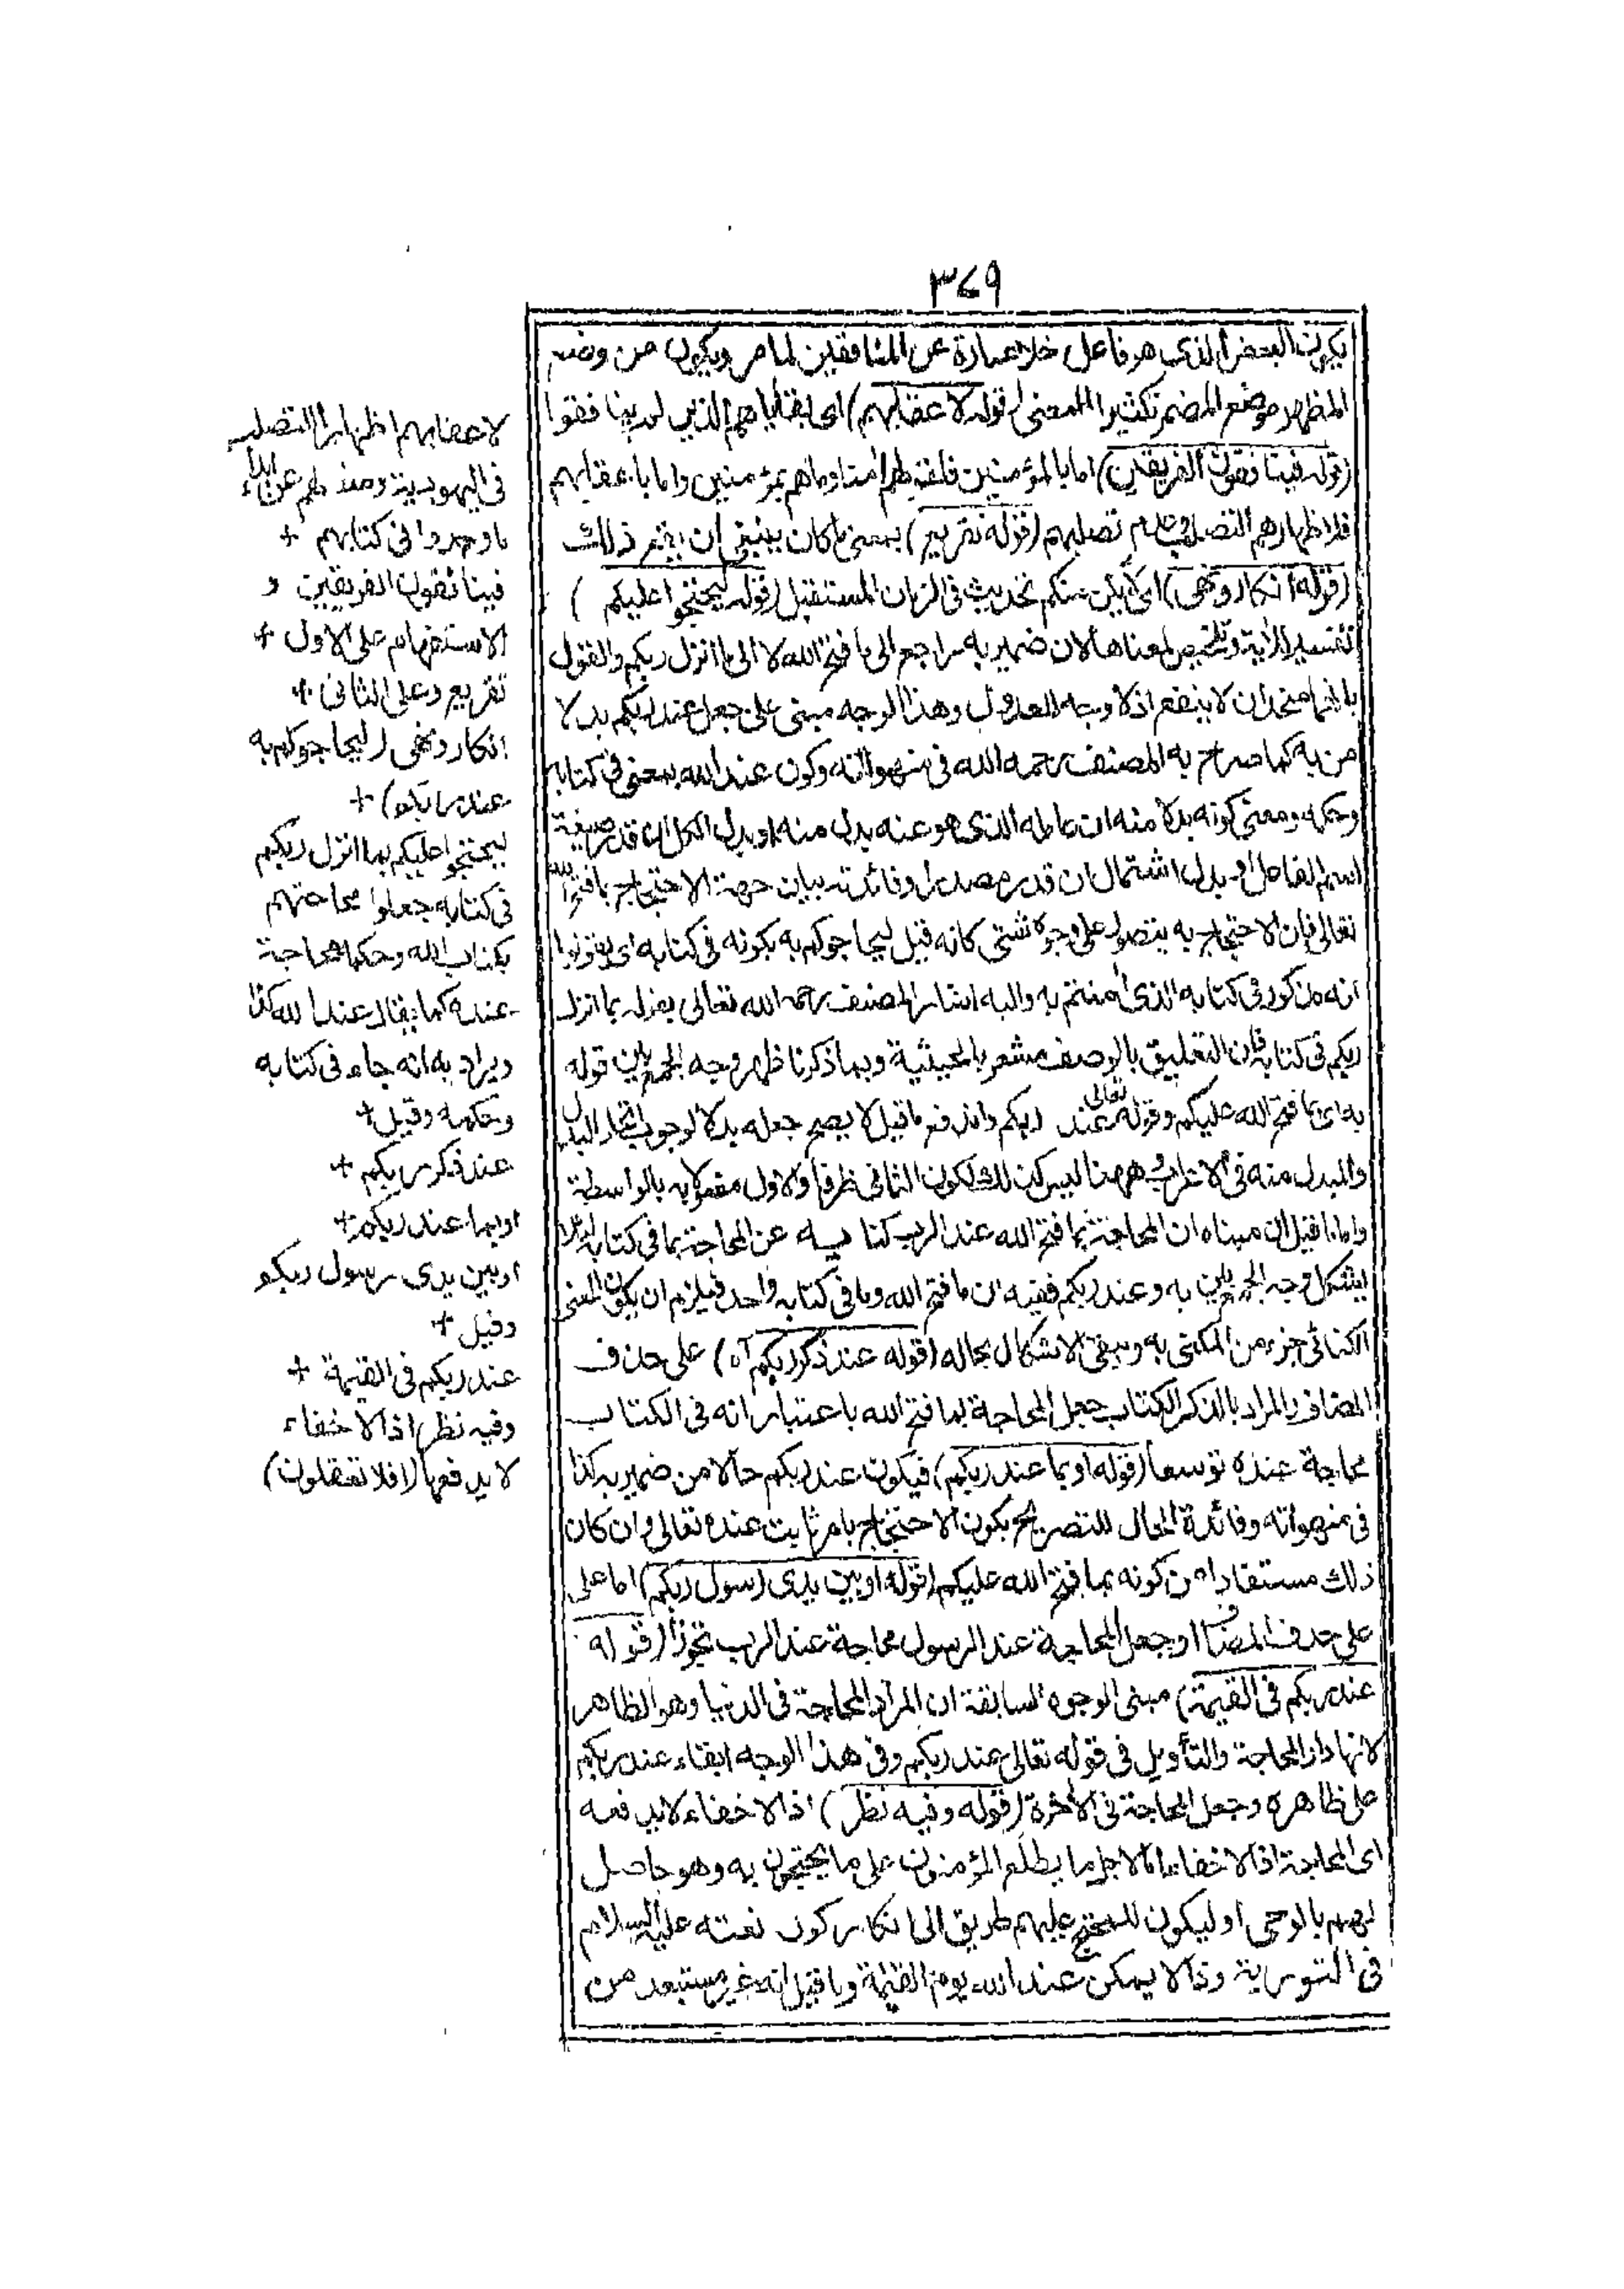 ٣٤٩
يكون البعض الذى هو فاعل خلا عبارة عن المنافقين لما مر ويكون من وضع
المظهر موضع المضمر تكثيرا للمعنى (قوله لاعقابهم) اى بقاياهم الذين لم ينافقوا
(قوله فينافقون الفريقين) اما بالمؤمنين فلقولهم امنا وما هم بمؤمنين واما باعقابهم
فلاظهارهم التصلب تصلبهم (قوله تقريع) بمعنى ما كان ينبغى ان يقع ذلك
(قوله انكار ونهى) اى لا يكن منكم تحديث فى الزمان المستقبل (قوله ليحتجوا عليكم)
تفسير للآية وتلخيص لمعناها لان ضمير به راجع الى ما فتح الله لا الى ما انزل ربكم والقول
بانهما متحدان لا ينفع اذ لا وجه للعدول وهذا الوجه مبنى على جعل عند ربكم بدلا
من به كما صرح به المصنف رحمه الله فى منهواته وكون عند الله بمعنى فى كتابه
وحكمه ومعنى كونه بدلا منه ان عامله الذى هو عنه بدل منه او بدل الكل ان قدر صيغة
اسم الفاعل او بدل اشتمال ان قدر مصدرا وفائدته بيان جهة الاحتجاج بما فتح الله
تعالى فان الاحتجاج به يتصور على وجوه شتى كانه قيل ليحاجوكم به بكونه فى كتابه اى يقولوا
انه مذكور فى كتابه الذى امنتم به واليه اشار المصنف رحمه الله تعالى بقوله بما انزل
ربكم فى كتابه فان التعليق بالوصف مشعر بالحيثية وبما ذكرنا ظهر وجه الجمع بين قوله
به اى بما فتح الله عليكم وقوله تعالى عند ربكم واندفع ما قيل لا يصح جعله بدلا لوجوب اتحاد البدل
والمبدل منه فى الاعراب وههنا ليس كذلك لكون الثانى ظرفا والاول مفعولا به بالواسطة
واما ما قيل ان مبناه ان المحاجة بما فتح الله عند الرب كناية عن المحاجة بما فى كتابه لئلا
يشكل وجه الجمع بين به وعند ربكم ففيه ان ما فتح الله وما فى كتابه واحد فيلزم ان يكون المعنى
الكنائى جزء من المكنى به ويبقى الاشكال بحاله (قوله عند ذكر ربكم اه) على حذف
المضاف والمراد بالذكر الكتاب جعل المحاجة بما فتح الله باعتبار انه فى الكتاب
محاجة عنده توسعا (قوله او بما عند ربكم) فيكون عند ربكم حالا من ضمير به كذا
فى منهواته وفائدة الحال للتصريح بكون الاحتجاج بامر ثابت عنده تعالى وان كان
ذلك مستفادا من كونه بما فتح الله عليكم (قوله او بين يدى رسول ربكم) اما على
على حذف المضاف او جعل المحاجة عند الرسول محاجة عند الرب تجوزا (قوله
عند ربكم فى القيمة) مبنى الوجوه السابقة ان المراد المحاجة فى الدنيا وهو الظاهر
لانها دار المحاجة والتأويل فى قوله تعالى عند ربكم وفى هذا الوجه ابقاء عند ربكم
على ظاهره وجعل المحاجة فى الآخرة (قوله وفيه نظر) اذ الاخفاء لا يدفعه
اى المحاجة اذ الاخفاء انما لاجل ما يطلع المؤمنون على ما يحتجون به وهو حاصل
لهم بالوحى او ليكون للمحتج عليهم طريق الى انكار كون نعته عليه السلام
فى التورية وذا لا يمكن عند الله يوم القيمة وما قيل انه غير مستبعد من
لاعقابهم اظهارا للتصلب
فى اليهودية ومنعا لهم عن ابداء
ما وجدوا فى كتابهم +
فينافقون الفريقين و
الاستفهام على الاول +
تقريع وعلى الثانى +
انكار ونهى (ليحاجوكم به
عند ربكم) +
ليحتجوا عليكم بما انزل ربكم
فى كتابه جعلوا محاجتهم
بكتاب الله وحكمه محاجة
عنده كما يقال عند الله كذا
ويراد به انه جاء فى كتابه
وحكمه وقيل +
عند ذكر ربكم +
او بما عند ربكم +
او بين يدى رسول ربكم
وقيل +
عند ربكم فى القيمة +
وفيه نظر اذ الاخفاء
لا يدفعها (افلا تعقلون)